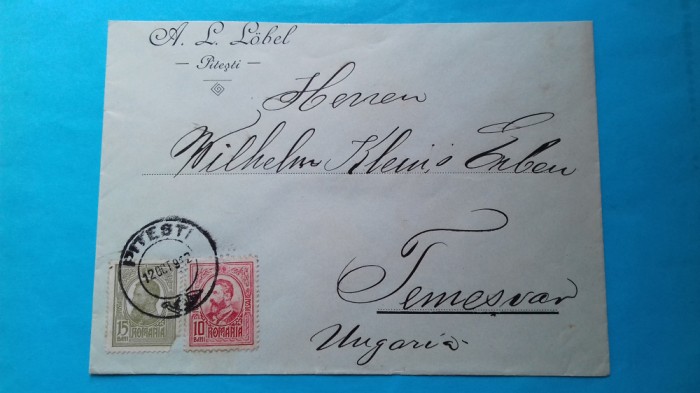 A. L. Löbel
— Pitești —
Herren
Wilhelm Klein's Erben
Temesvar
Ungaria
PITESTI
12 OCT 912
15 BANI
ROMANIA
10 BANI
ROMANIA